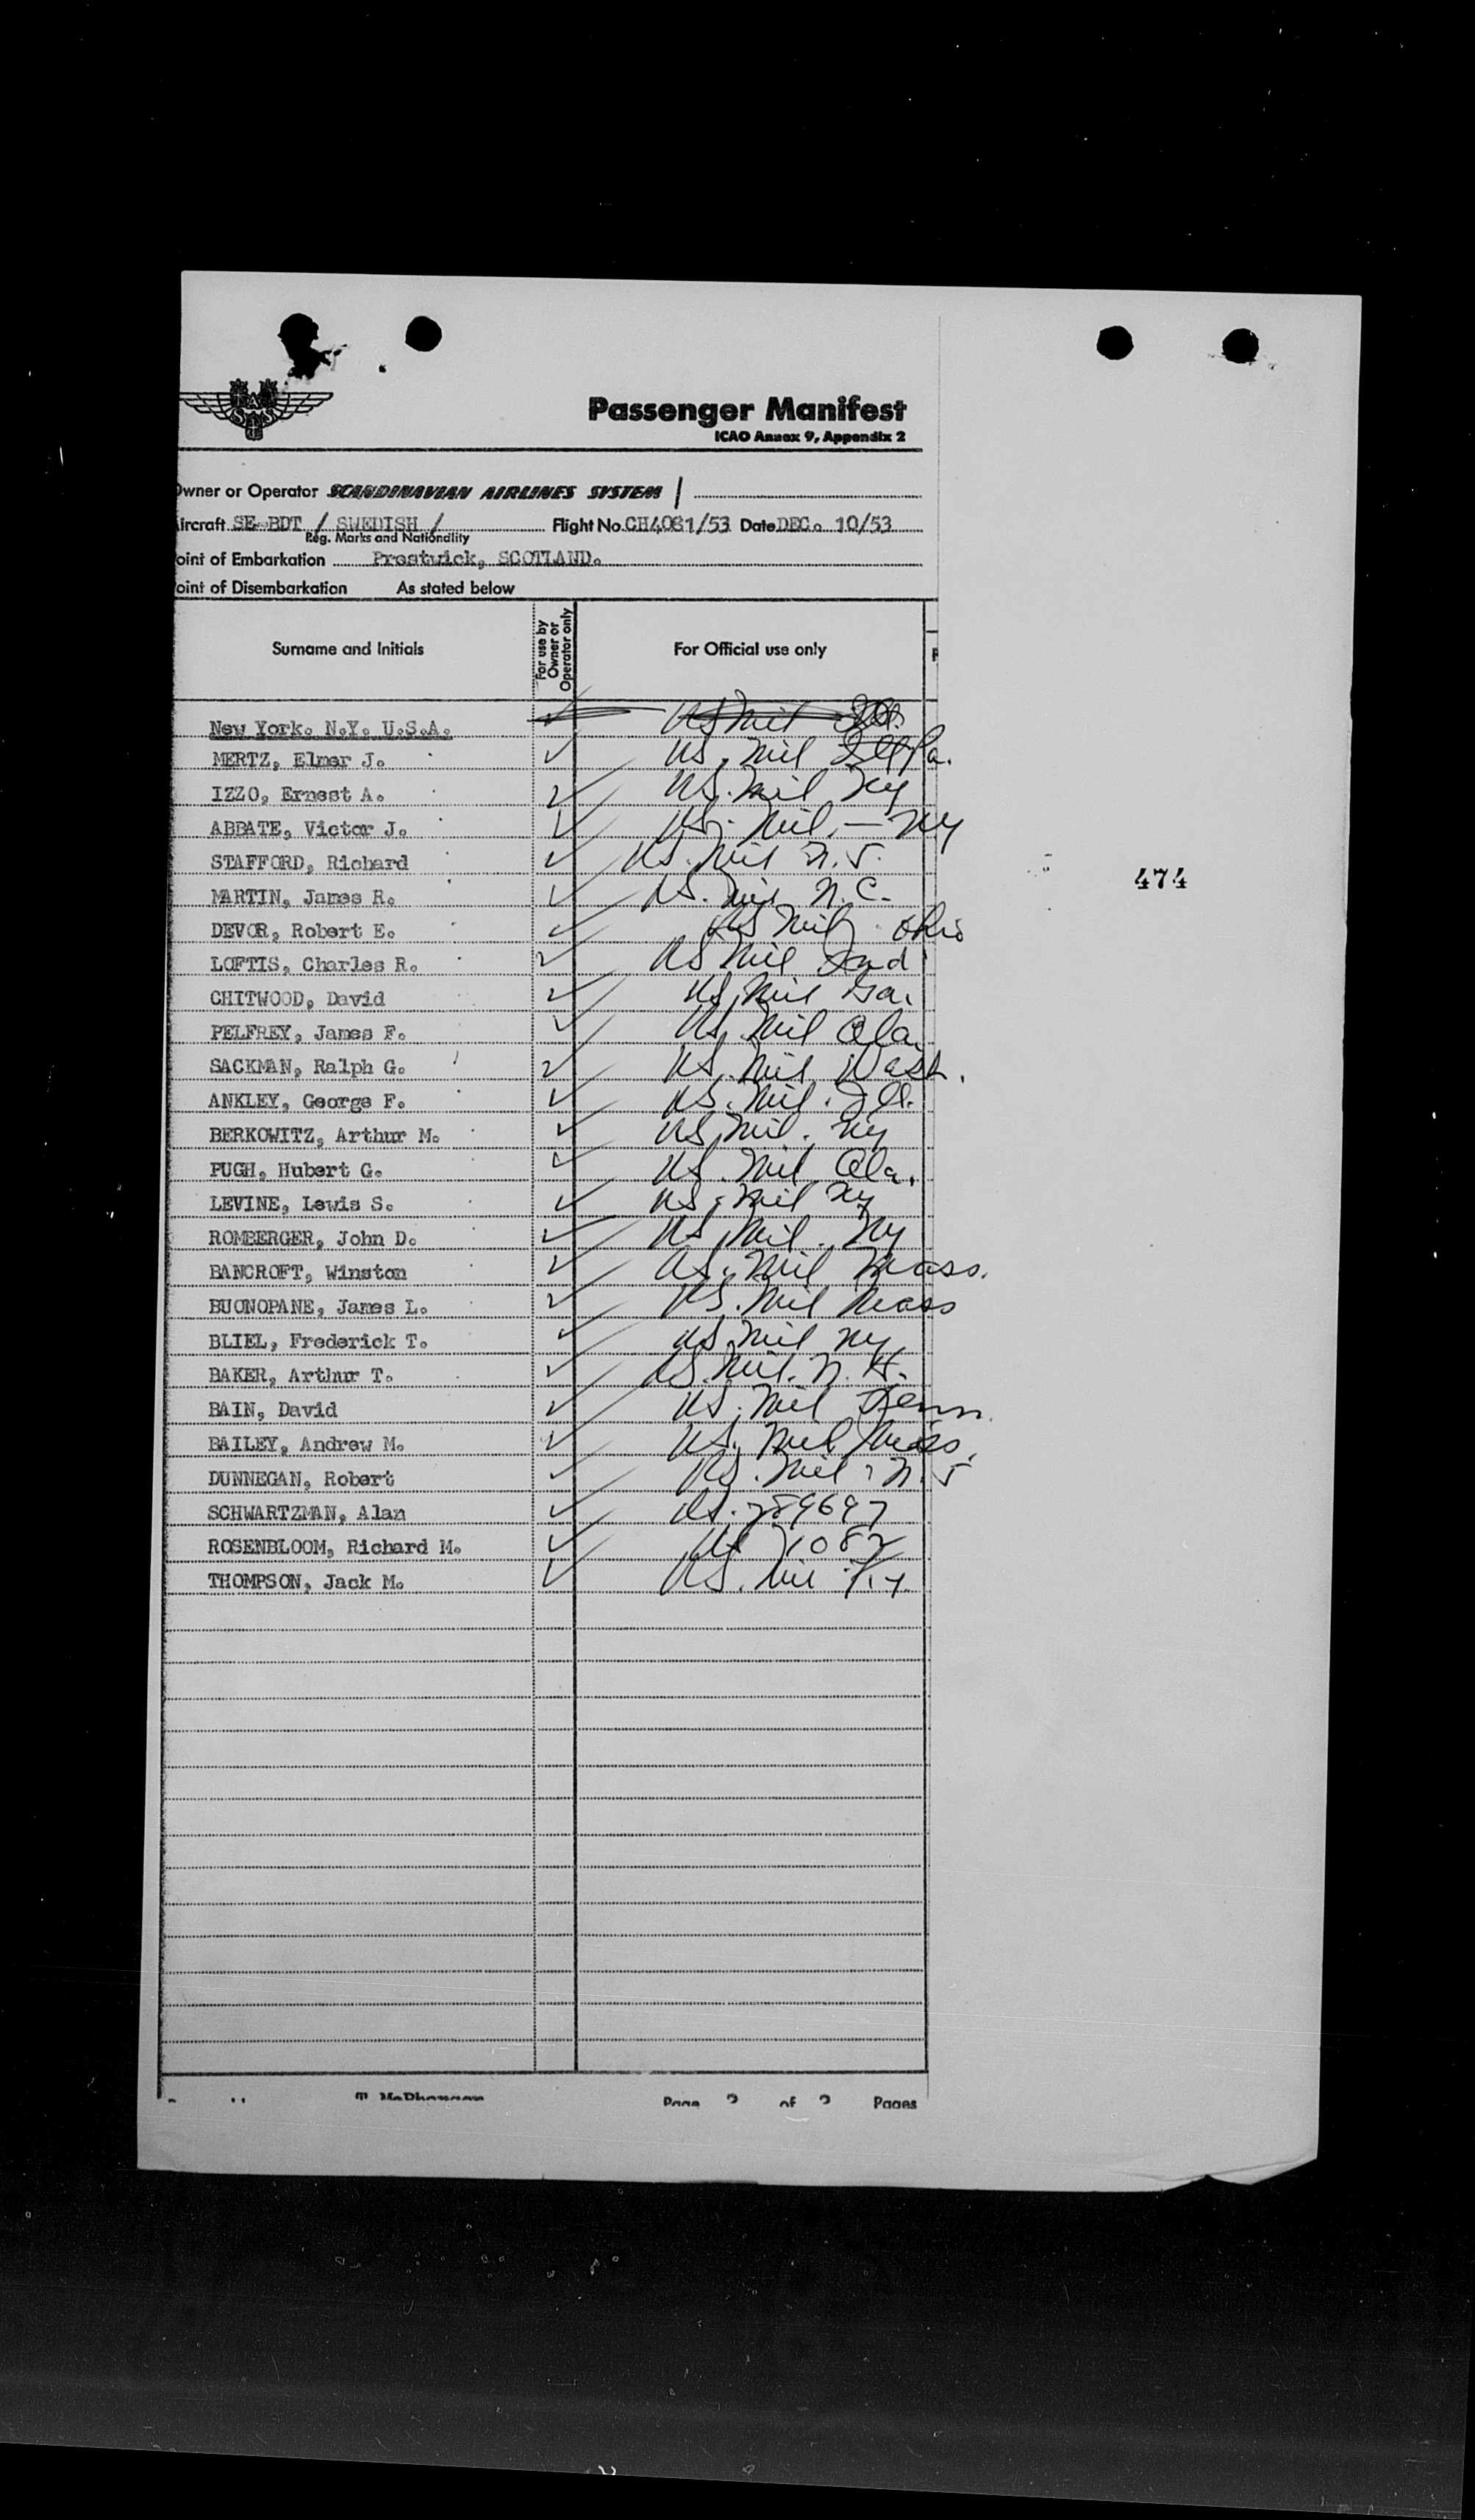 SAS
Passenger Manifest
ICAO Annex 9, Appendix 2
Owner or Operator SCANDINAVIAN AIRLINES SYSTEM /
ircraft SE-BDT / SWEDISH / Flight No. CH4081/53 Date DEC. 10/53
Reg. Marks and Nationality
oint of Embarkation Prestwick, SCOTLAND.
oint of Disembarkation As stated below
Surname and Initials For use by Owner or Operator only For Official use only
New York. N.Y. U.S.A. US Mil Ill.
MERTZ, Elmer J. US. Mil Ill Pa.
IZZO, Ernest A. US. Mil Ny
ABBATE, Victor J. US. Mil. — Ny
STAFFORD, Richard US. Mil N.J.
MARTIN, James R. US. Mil N.C.
DEVOR, Robert E. US Mil Ohio
LOFTIS, Charles R. US Mil Ind
CHITWOOD, David US Mil Ga.
PELFREY, James F. US. Mil Ala
SACKMAN, Ralph G. US. Mil Wash.
ANKLEY, George F. US. Mil. Ill.
BERKOWITZ, Arthur M. US Mil. Ny
PUGH, Hubert G. US. Mil Ala.
LEVINE, Lewis S. US. Mil Ny
ROMBERGER, John D. US Mil. Ny
BANCROFT, Winston US. Mil Mass.
BUONOPANE, James L. US. Mil Mass
BLIEL, Frederick T. US Mil Ny
BAKER, Arthur T. US. Mil. N.H.
BAIN, David US. Mil Tenn.
BAILEY, Andrew M. US. Mil Miss.
DUNNEGAN, Robert US. Mil N.J
SCHWARTZMAN, Alan US. 289697
ROSENBLOOM, Richard M. US 71082
THOMPSON, Jack M. US. Mil Ky.
474
Page of Pages